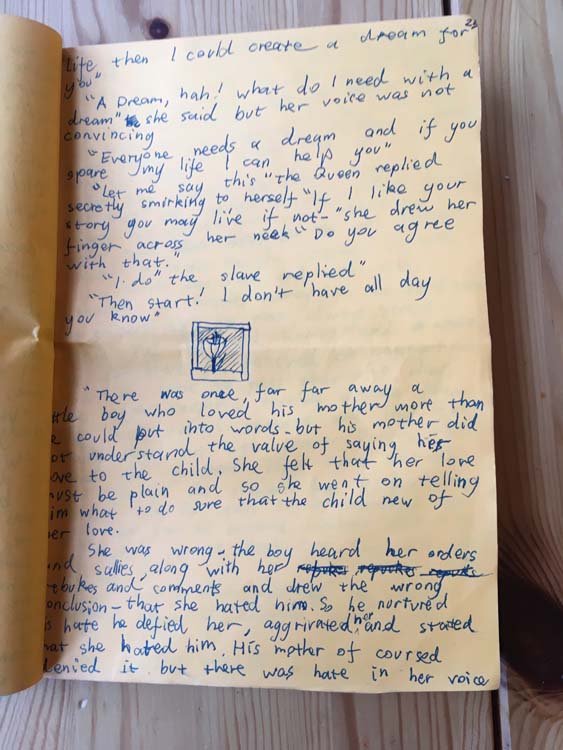 2
life then I could create a dream for
you"
"A Dream, hah! what do I need with a
dream" she said but her voice was not
convincing
"Everyone needs a dream and if you
spare my life I can help you"
"Let me say this" The Queen replied
secretly smirking to herself "If I like your
story you may live if not-" she drew her
finger across her neck "Do you agree
with that."
"I do" the slave replied"
"Then start! I don't have all day
you know"
"There was once, far far away a
ttle boy who loved his mother more than
e could put into words - but his mother did
ot understand the value of saying her
ove to the child. She felt that her love
ust be plain and so she went on telling
im what to do sure that the child new of
er love.
She was wrong - the boy heard her orders
nd sallies, along with her
ebukes and comments and drew the wrong
onclusion - that she hated him. So he nortured
s hate he defied her, aggrivated her and stated
at she hated him. His mother of coursed
denied it but there was hate in her voice